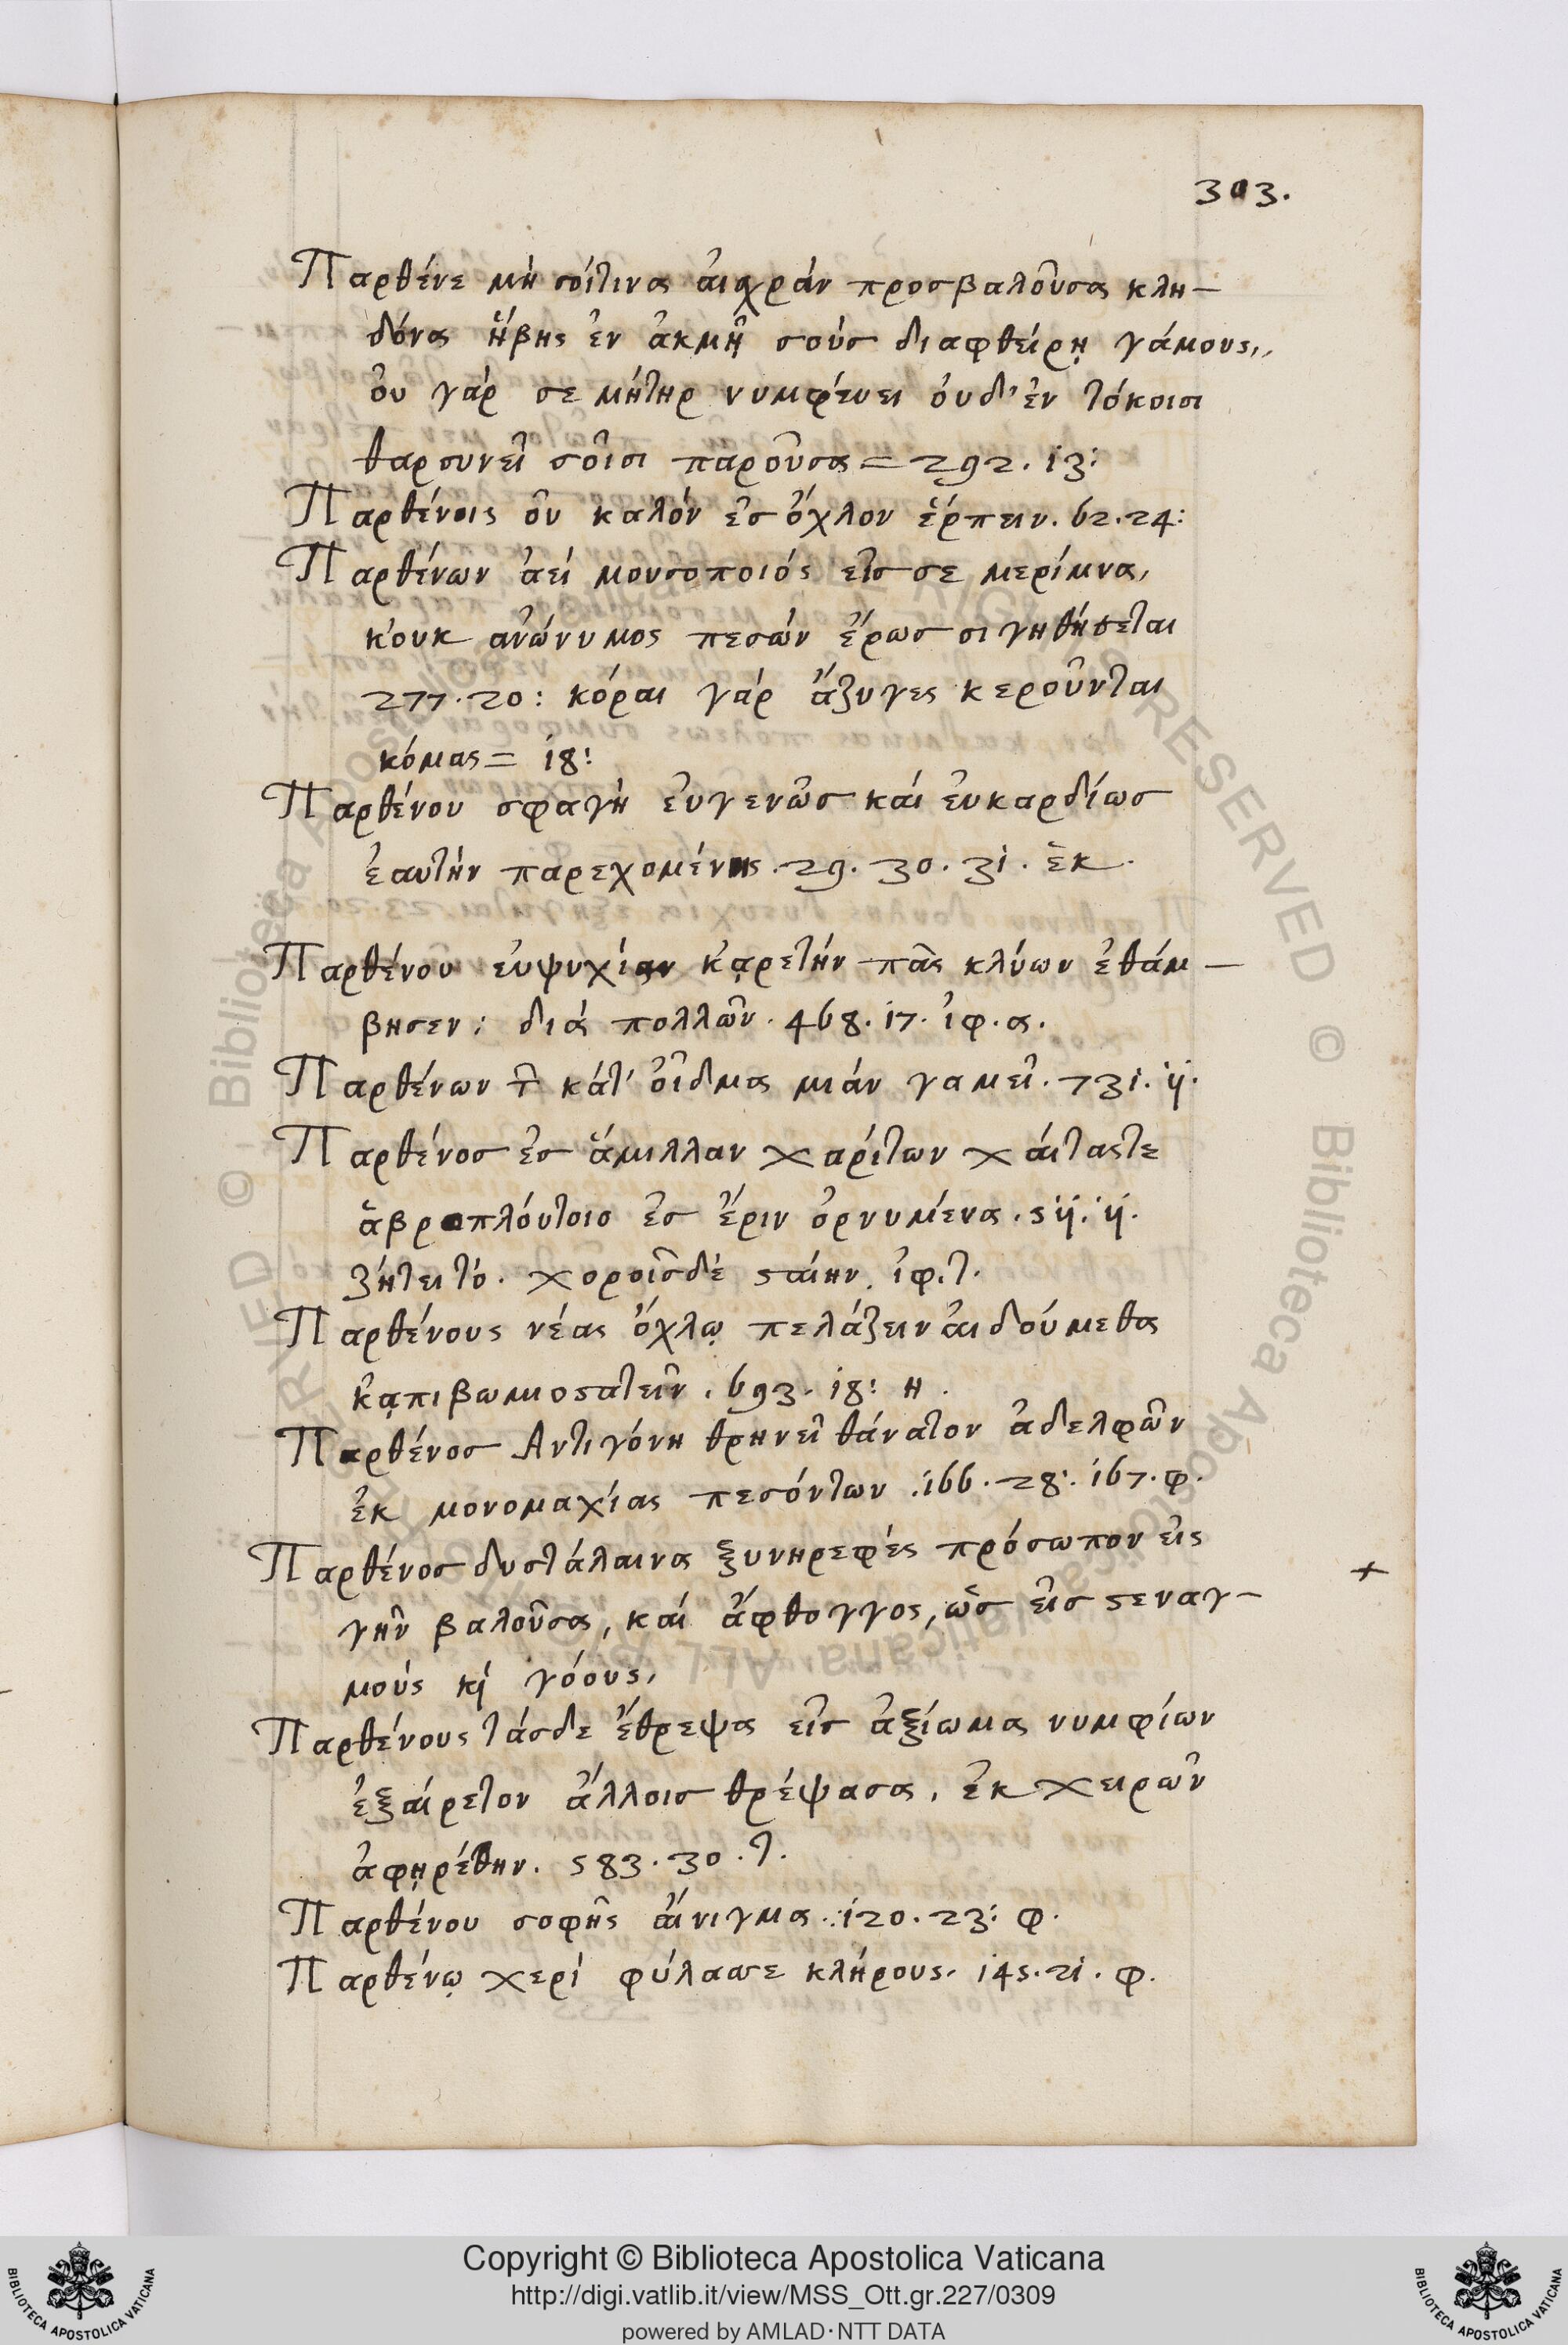 303.
Παρθένε μή σόί τινα αἰσχράν προσβαλοῦσα κλη-
δόνα ἥβης ἐν ἀκμῇ σούς διαφθείρῃ γάμους,,
ὀυ γάρ σε μήτηρ νυμφέυει ὀυδ' ἐν τόκοισι
θαρσυνεῖ σοῖσι παροῦσα = 292. 13:
Παρθένοις ὀυ καλόν ἐσ ὄχλον ἕρπειν. 62. 24:
Παρθένων ἀεί μουσοποιός εἰσ σε μερίμνα,
κ'ουκ ἀνώνυμος πεσών ἔρωσ σιγηθήσεται
277. 20: κόραι γάρ ἄζυγες κεροῦνται
κόμας = 18:
Παρθένου σφαγή ἐυγενῶσ καί ἐυκαρδίωσ
ἑαυτήν παρεχομένης. 29. 30. 31. ἑκ.
Παρθένου ἐυψυχίαν κᾀρετήν πᾶς κλύων ἐθάμ-
βησεν: διά πολλῶν. 468. 17. ἰφ. α.
Παρθένων κάτ' ὄιδμα μιάν γαμεῖ. 731. 11.
Παρθένοσ ἐσ ἅμιλλαν χαρίτων χάιτας τε
ἁβροπλόυτοισ ἐσ ἔριν ὀρνυμένα. 511. 11.
ζήτει τό. χοροῖσ δέ ϛαίην. ἰφ. τ.
Παρθένους νέας ὄχλῳ πελάζειν ἀιδούμεθα
κᾀπιβωμιοϛατεῖν. 693. 18: η.
Παρθένοσ Αντιγόνη θρηνεῖ θάνατον ἀδελφῶν
ἐκ μονομαχίας πεσόντων. 166. 28: 167. φ.
Παρθένοσ δυστάλαινα ξυνηρεφές πρόσωπον εἰς
γῆν βαλοῦσα, καί ἄφθογγος, ὡσ εἰσ ϛεναγ-
μούς κ̀ γόους,
+
Παρθένους τάσδε ἔθρεψα εἰσ ἀξίωμα νυμφίων
ἐξαίρετον ἄλλοισ θρέψασα, ἐκ χειρῶν
ἀφῃρέθην. 583. 30. τ.
Παρθένου σοφῆς ἄινιγμα. 120. 23: φ.
Παρθένῳ χερί φύλασσε κλήρους. 145. 21. φ.
Copyright © Biblioteca Apostolica Vaticana
http://digi.vatlib.it/view/MSS_Ott.gr.227/0309
powered by AMLAD·NTT DATA